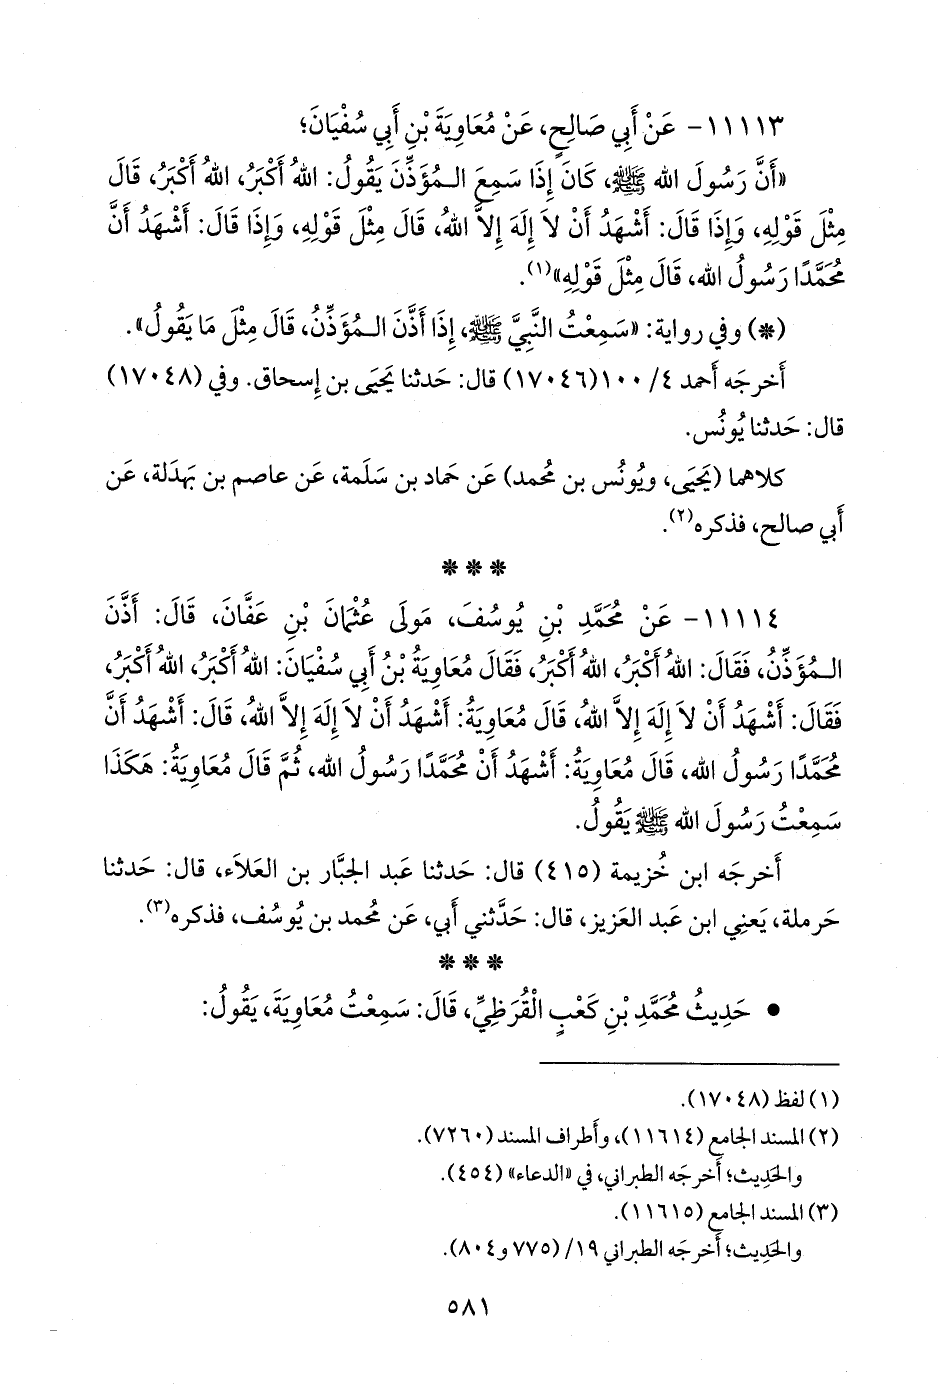 ١١١١٣- عَنْ أَبِي صَالِحٍ، عَنْ مُعَاوِيَةَ بْنِ أَبِي سُفْيَانَ؛
«أَنَّ رَسُولَ الله ﷺ، كَانَ إِذَا سَمِعَ الـمُؤَذِّنَ يَقُولُ: اللهُ أَكْبَرُ، اللهُ أَكْبَرُ، قَالَ
مِثْلَ قَوْلِهِ، وَإِذَا قَالَ: أَشْهَدُ أَنْ لاَ إِلَهَ إِلاَّ اللهُ، قَالَ مِثْلَ قَوْلِهِ، وَإِذَا قَالَ: أَشْهَدُ أَنَّ
مُحَمَّدًا رَسُولُ الله، قَالَ مِثْلَ قَوْلِهِ»(١).
(*) وفي رواية: «سَمِعْتُ النَّبِيَّ ﷺ، إِذَا أَذَّنَ الـمُؤَذِّنُ، قَالَ مِثْلَ مَا يَقُولُ».
أَخرجَه أَحمد ٤/ ١٠٠(١٧٠٤٦) قال: حَدثنا يَحيَى بن إِسحاق. وفي (١٧٠٤٨)
قال: حَدثنا يُونُس.
كلاهما (يَحيَى، ويُونُس بن مُحمد) عَن حَماد بن سَلَمة، عَن عاصم بن بَهدَلة، عَن
أَبي صالح، فذكره(٢).
* * *
١١١١٤- عَنْ مُحَمَّدِ بْنِ يُوسُفَ، مَولَى عُثْمَانَ بْنِ عَفَّانَ، قَالَ: أَذَّنَ
الـمُؤَذِّنُ، فَقَالَ: اللهُ أَكْبَرُ، اللهُ أَكْبَرُ، فَقَالَ مُعَاوِيَةُ بْنُ أَبِي سُفْيَانَ: اللهُ أَكْبَرُ، اللهُ أَكْبَرُ،
فَقَالَ: أَشْهَدُ أَنْ لاَ إِلَهَ إِلاَّ اللهُ، قَالَ مُعَاوِيَةُ: أَشْهَدُ أَنْ لاَ إِلَهَ إِلاَّ اللهُ، قَالَ: أَشْهَدُ أَنَّ
مُحَمَّدًا رَسُولُ الله، قَالَ مُعَاوِيَةُ: أَشْهَدُ أَنْ مُحَمَّدًا رَسُولُ الله، ثُمَّ قَالَ مُعَاوِيَةُ: هَكَذَا
سَمِعْتُ رَسُولَ الله ﷺ يَقُولُ.
أَخرجَه ابن خُزيمة (٤١٥) قال: حَدثنا عَبد الجَبَّار بن العَلاَء، قال: حَدثنا
حَرملة، يَعنِي ابن عَبد العَزيز، قال: حَدَّثني أَبي، عَن مُحمد بن يُوسُف، فذكره(٣).
* * *
• حَدِيثُ مُحَمَّدِ بْنِ كَعْبٍ الْقُرَظِيِّ، قَالَ: سَمِعْتُ مُعَاوِيَةَ، يَقُولُ:
(١) لفظ (١٧٠٤٨).
(٢) المسند الجامع (١١٦١٤)، وأَطراف المسند (٧٢٦٠).
والحَدِيث؛ أَخرجَه الطبراني، في «الدعاء» (٤٥٤).
(٣) المسند الجامع (١١٦١٥).
والحَدِيث؛ أَخرجَه الطبراني ١٩/ (٧٧٥ و٨٠٤).
٥٨١